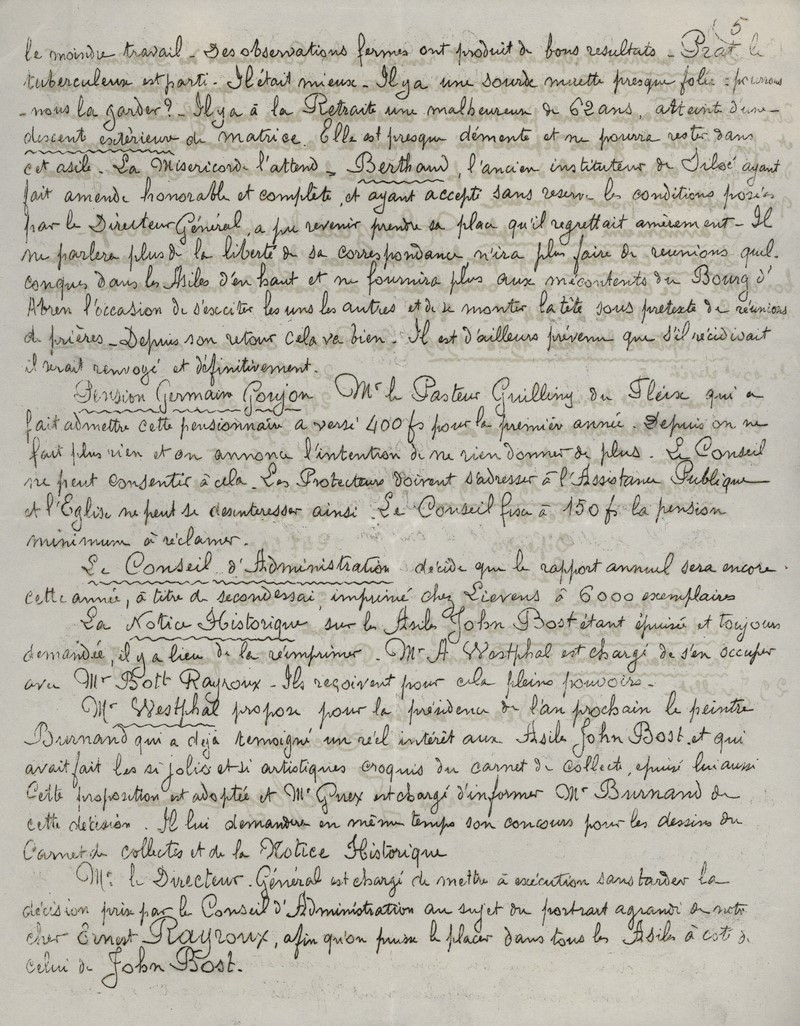 5
le moindre travail - Des observations fermes ont produit de bons resultats - Prat le
tuberculeux est parti - Il était mieux - Il y a une sourde muette presque folie - pourrons
-nous la garder? - Il y a à la Retraite une malheureuse de 62 ans, atteinte d'une
descent extérieure de matrice. Elle est presque démente et ne pourra rester dans
cet asile. La Misericorde l'attend - Berthaud, l'ancien instituteur de Siloé ayant
fait amende honorable et complète, et ayant accepté sans reserve les conditions posées
par le Directeur Général, a pu revenir prendre sa place qu'il regrettait amèrement - Il
ne parlera plus de la liberté de sa correspondance, n'ira plus faire de reunions quel-
conques dans les Asiles d'en haut et ne fournira plus aux mécontents du Bourg d'
Abren l'occasion de s'exciter les uns les autres et de se monter la tête sous pretexte de réunions
de prières - Depuis son retour cela va bien - Il est d'ailleurs prévenu que s'il récidivait
il serait renvoyé et définitivement.
Pension Germain Goujon Mr le Pasteur Guilling du Fleix qui a
fait admettre cette pensionnaire a versé 400 fs pour la premier année. Depuis on ne
fait plus rien et on annonce l'intention de ne rien donner de plus. Le Conseil
ne peut consentir à cela. Les Protecteurs doivent s'adresser à l'Assistance Publique
et l'Eglise ne peut se desinteresser ainsi. Le Conseil fixe à 150 fs la pension
minimum à réclamer.
Le Conseil d'Administration décide que le rapport annuel sera encore
cette année, à titre de second essai, imprimé chez Lievens à 6000 exemplaires
La Notice Historique sur les Asiles John Bost étant épuisé et toujours
demandée, il y a lieu de la réimprimer. Mr A Westphal est chargé de s'en occuper
avec Mr Bott Rayroux - Ils reçoivent pour cela pleins pouvoirs -
Mr Westphal propose pour la présidence de l'an prochain le peintre
Burnand qui a déjà temoigné un réel intérêt aux Asiles John Bost. et qui
avait fait les si jolies et si artistiques croquis du carnet de collecte, épuisé lui aussi
Cette proposition est adoptée et Mr Gurex est chargé d'informer Mr Burnand de
cette décision. Il lui demandera en même temps son concours pour les dessins du
Carnet de collectes et de la Notice Historique
Mr le Directeur Général est chargé de mettre à exécution sans tarder la
décision prise par le Conseil d'Administration au sujet du portrait agrandi de notre
cher Ernest Rayroux, afin qu'on puisse le placer dans tous les Asiles à coté de
celui de John Bost.